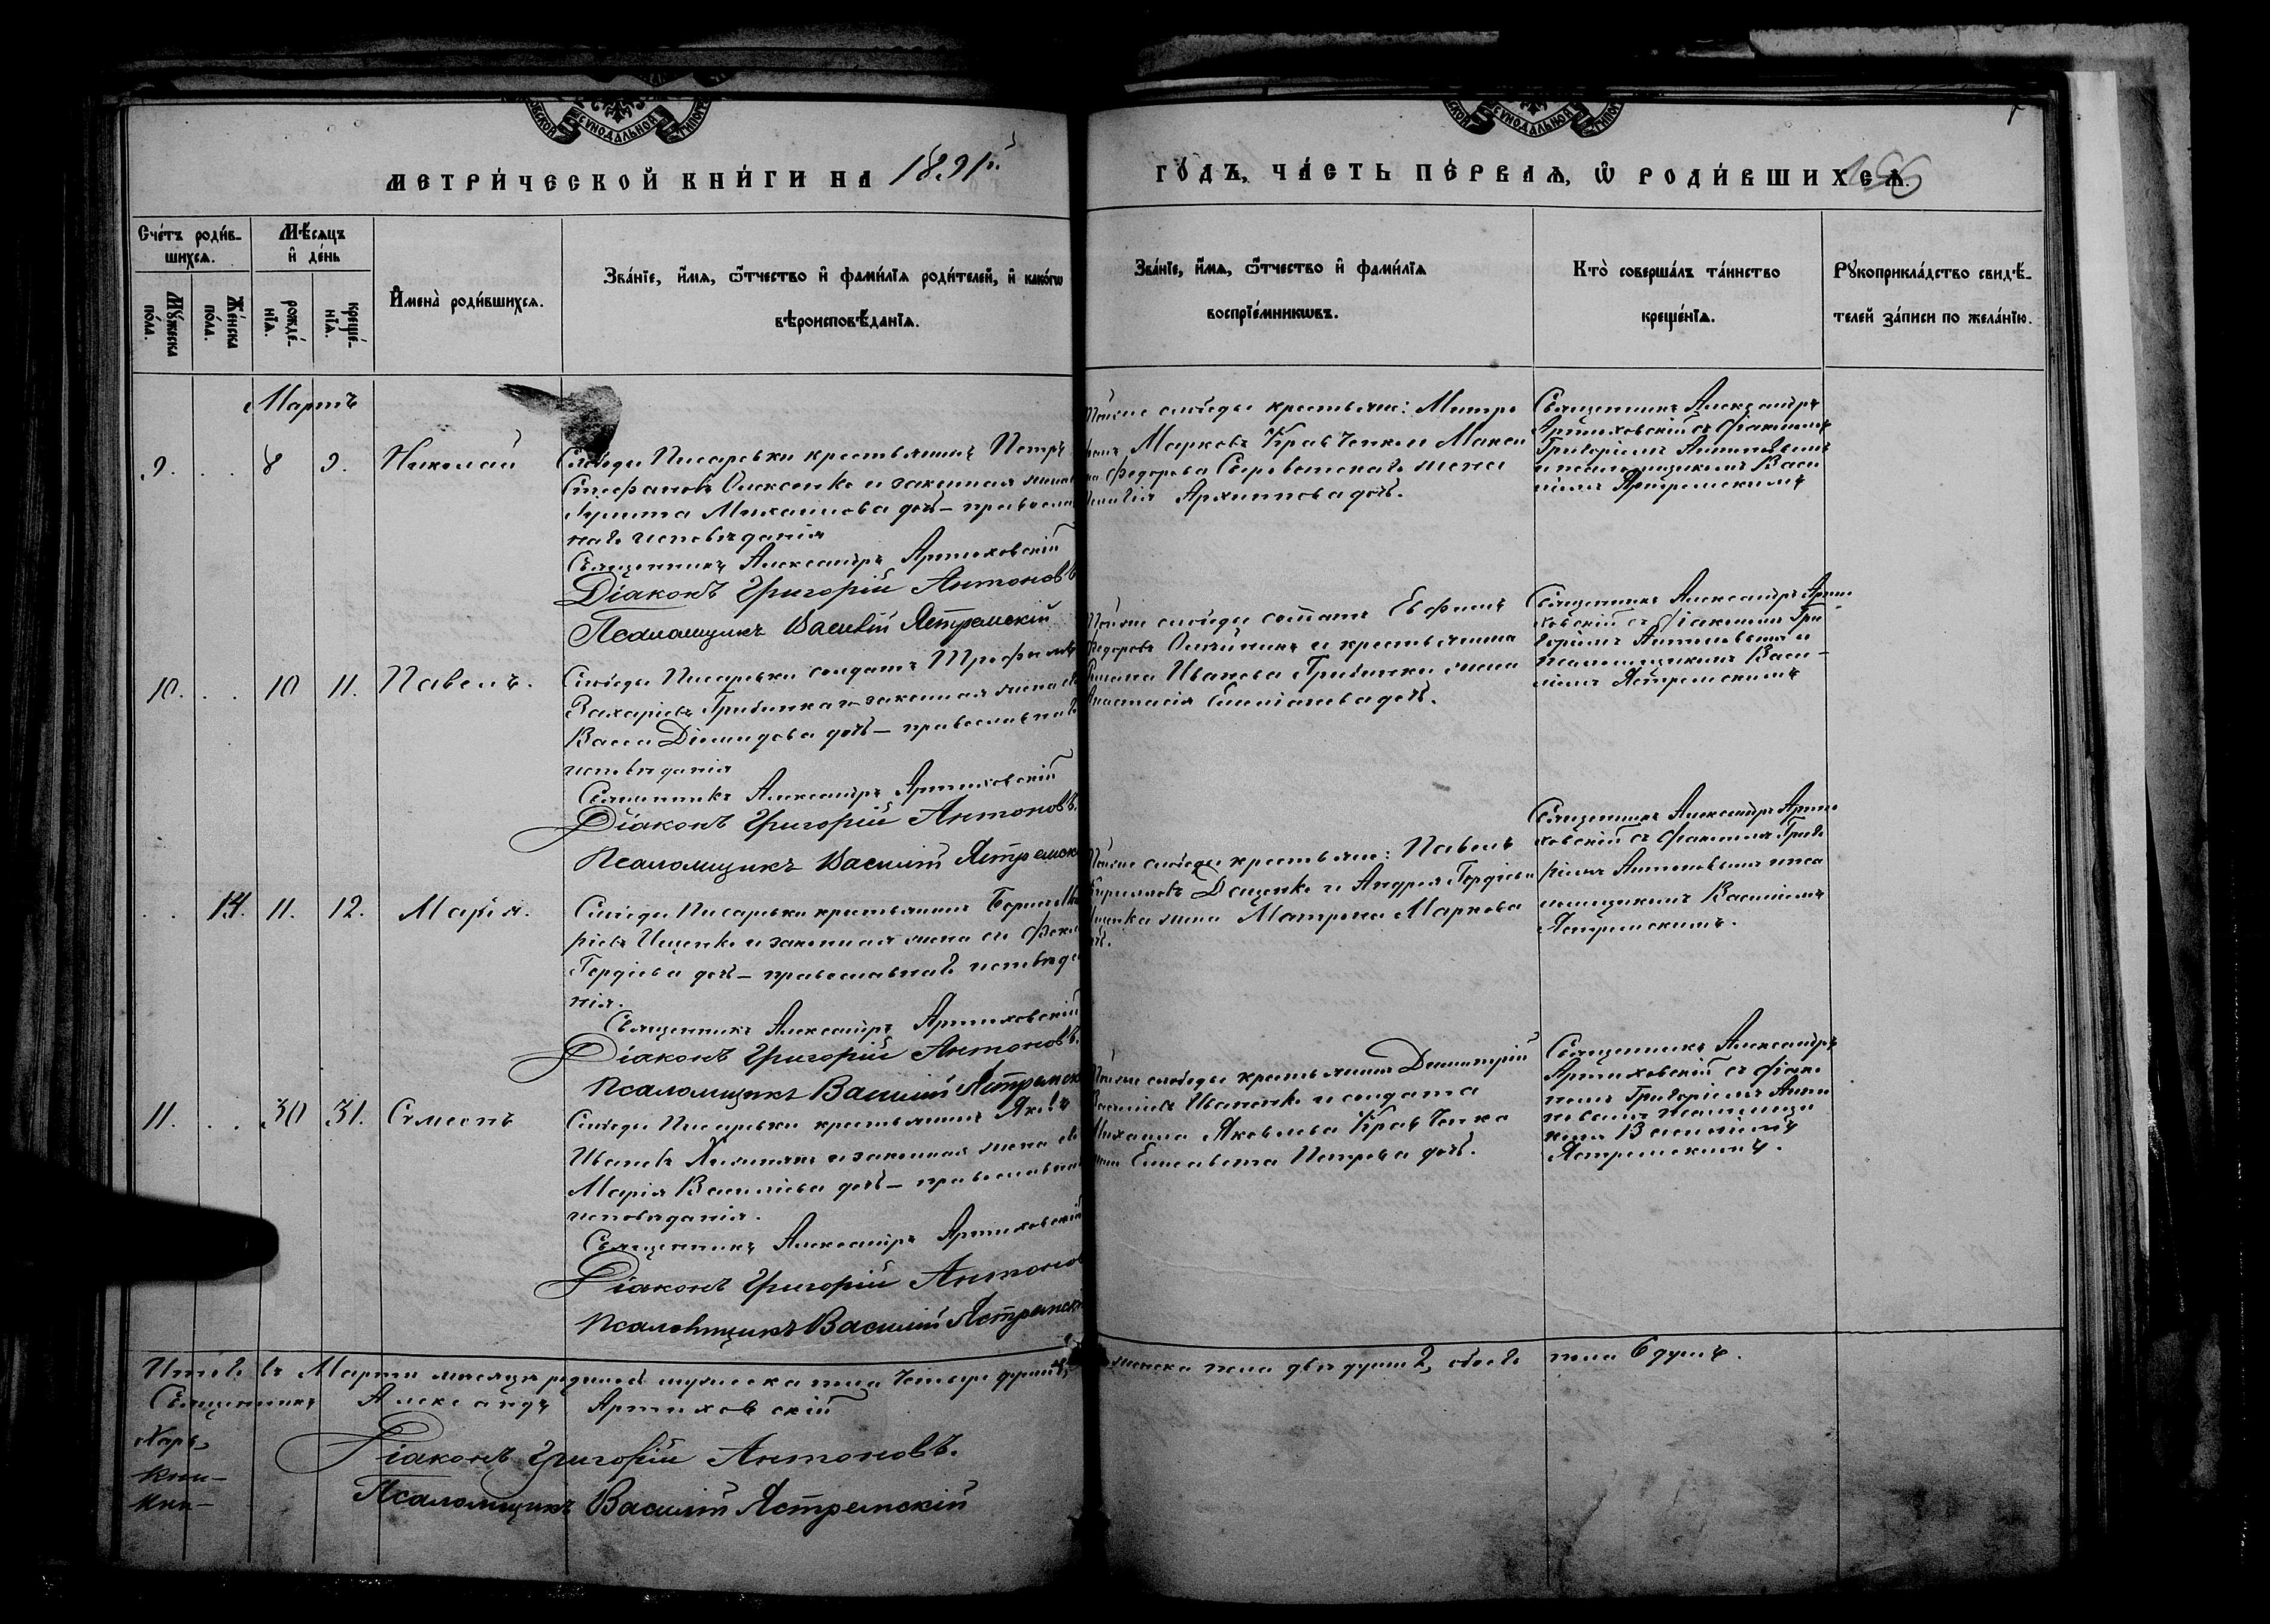 МЕТРИ́ЧЕСКОЙ КНИ́ГИ НА 1891й
ГО́ДЪ, ЧА́СТЬ ПЕ́РВАѦ, Ѡ РОДИ́ВШИХСѦ.
Сче́тъ роди́в-
шихсѧ.
Мѣ́сѧцъ
и҆ де́нь
Мꙋ́жеска
по́ла.
Же́нска
по́ла.
рожде́-
нїѧ.
креще́-
нїѧ.
И҆мена̀ роди́вшихсѧ.
Зва́нїе, и҆́мѧ, ѻ҆́тчество и҆ фами́лїѧ роди́телей, и҆ како́гѡ
вѣроисповѣ́данїѧ.
Зва́нїе, и҆́мѧ, ѻ҆́тчество и҆ фами́лїѧ
воспрїе́мникѡвъ.
Кто̀ соверша́лъ та́инство
креще́нїѧ.
Рꙋкоприкла́дство свидѣ́-
телей за́писи по жела́нїю.
Мартъ
9. . . 8 9. Николай
Слободы Писаревки крестьянинъ Петръ
Стефановъ Олексенко и законная жена
Михаилова доч— православ
наго исповѣданія
Священникъ Александръ Артюховскій
Діаконъ Григорій Антоновъ
Псаломщикъ Василій Ястремскій
слободы крестьяне: Митро
Марковъ Кравченко и Макси
Федорова Сыроватскаго жена
Архиппова доч.
Священникъ Александръ
Артюховскій съ діакономъ
Григоріемъ Антоновымъ
и псаломщикомъ Васи
ліемъ Ястремскимъ
10. . . 10 11. Павелъ.
Слободы Писаревки солдатъ Трофимъ
Захаріевъ Грибинка и законная жена его
Васса Діомидова доч— православнаго
исповѣданія
Священникъ Александръ Артюховскій
Діаконъ Григорій Антоновъ.
Псаломщикъ Василій Ястремск
слободы солдатъ Евфимъ
Федоровъ и крестьянина
Романа Иванова Грибинки жена
Анастасія Емиліанова доч.
Священникъ Александръ Артю
ховскій съ діакономъ Гри
горіемъ Антоновымъ и
псаломщикомъ Васи-
ліемъ Ястремскимъ
. . 14. 11. 12. Марія.
Слободы Писаревки крестьянинъ Борисъ
ріевъ Ищенко и законная жена его Фекл
Гордіева доч— православнаго исповѣда
нія.
Священникъ Александръ Артюховскій
Діаконъ Григорій Антоновъ.
Псаломщикъ Василій Ястремск
слободы крестьяне: Павелъ
Кирилловъ Даценко и Андрея Гордіева
жена Матрона Маркова
доч.
Священникъ Александръ Артю
ховскій съ діакономъ Григо
ріемъ Антоновымъ и пса
ломщикомъ Василіемъ
Ястремскимъ.
11. . . 30 31. Сѵмеонъ
Слободы Писаревки крестьянинъ Яковъ
Ивановъ и законная жена его
Марія Василіева доч— православна
исповѣданія.
Священникъ Александръ Артюховскій
Діаконъ Григорій Антонов
Псаломщикъ Василій Ястремскі
слободы крестьянинъ Димитрій
Василіевъ Иваненко и солдата
Михаила Яковлева Кравченка
жена Елисавета Петрова доч.
Священникъ Александръ
Артюховскій съ діако
номъ Григоріемъ Анто
новымъ и псаломщи
комъ Василіемъ
Ястремскимъ.
Итого въ Мартѣ мѣсяцѣ родилось мужеска пола четыре души 4, женска пола двѣ души 2, обоего пола 6 душъ.
Священникъ Александръ Артюховскій
Діаконъ Григорій Антоновъ.
Псаломщикъ Василій Ястремскій